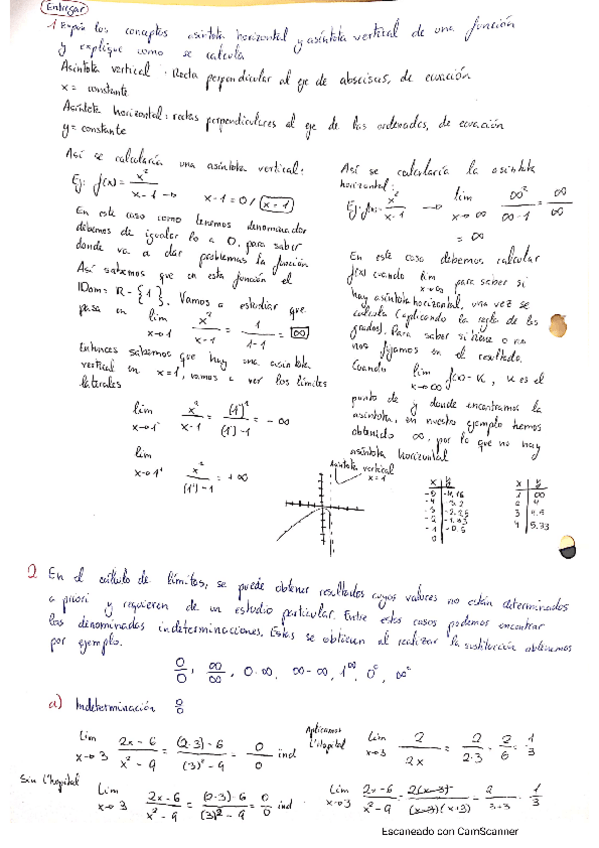 Entregar
1. Expón los conceptos asíntota horizontal y asíntota vertical de una función
y explique como se calcula
Asíntota vertical: Recta perpendicular al eje de abscisas, de ecuación
x = constante
Asíntota horizontal: rectas perpendiculares al eje de las ordenadas, de ecuación
y = constante
Así se calcularía una asíntota vertical:
Ej: f(x) = x² / x-1 → x-1 = 0 / x = 1
En este caso como tenemos denominador
debemos de igualarlo a 0, para saber
donde va a dar problemas la función
Así sabemos que en esta función el
Dom = R - {1}. Vamos a estudiar que
pasa en lim x→1 x² / x-1 = 1 / 1-1 = ∞
Entonces sabemos que hay una asíntota
vertical en x = 1, vamos a ver los límites
laterales
lim x→1⁻ x² / x-1 = (1)² / (1)-1 = -∞
lim x→1⁺ x² / (1⁺)-1 = +∞
Así se calcularía la asíntota
horizontal:
Ej: f(x) = x² / x-1 → lim x→∞ ∞² / ∞-1 = ∞ / ∞
= ∞
En este caso debemos calcular
f(x) cuando lim x→∞ para saber si
hay asíntota horizontal, una vez se
calcula (aplicando la regla de los
grados). Para saber si tiene o no
nos fijamos en el resultado.
Cuando lim x→∞ f(x) = K, K es el
punto de y donde encontramos la
asíntota, en nuestro ejemplo hemos
obtenido ∞, por lo que no hay
asíntota horizontal
Asíntota vertical
x = 1
x y
-5 -4,16
-4 -3,2
-3 -2,25
-2 -1,33
-1 -0,5
0
x y
1 ∞
2 4
3 4,5
4 5,33
2 En el cálculo de límites, se puede obtener resultados cuyos valores no están determinados
a priori y requieren de un estudio particular. Entre estos casos podemos encontrar
las denominadas indeterminaciones. Estas se obtienen al realizar la sustitución obtenemos
por ejemplo.
0/0, ∞/∞, 0·∞, ∞-∞, 1^∞, 0⁰, ∞⁰
a) Indeterminación 0/0
lim x→3 2x-6 / x²-9 = (2·3)-6 / (3)²-9 = 0/0 ind
Aplicamos
L'Hopital
lim x→3 2 / 2x = 2 / 2·3 = 2/6 = 1/3
Sin L'hopital
lim x→3 2x-6 / x²-9 = (2·3)-6 / (3)²-9 = 0/0 ind
lim x→3 2x-6 / x²-9 = 2(x-3) / (x-3)(x+3) = 2 / 3+3 = 1/3
Escaneado con CamScanner